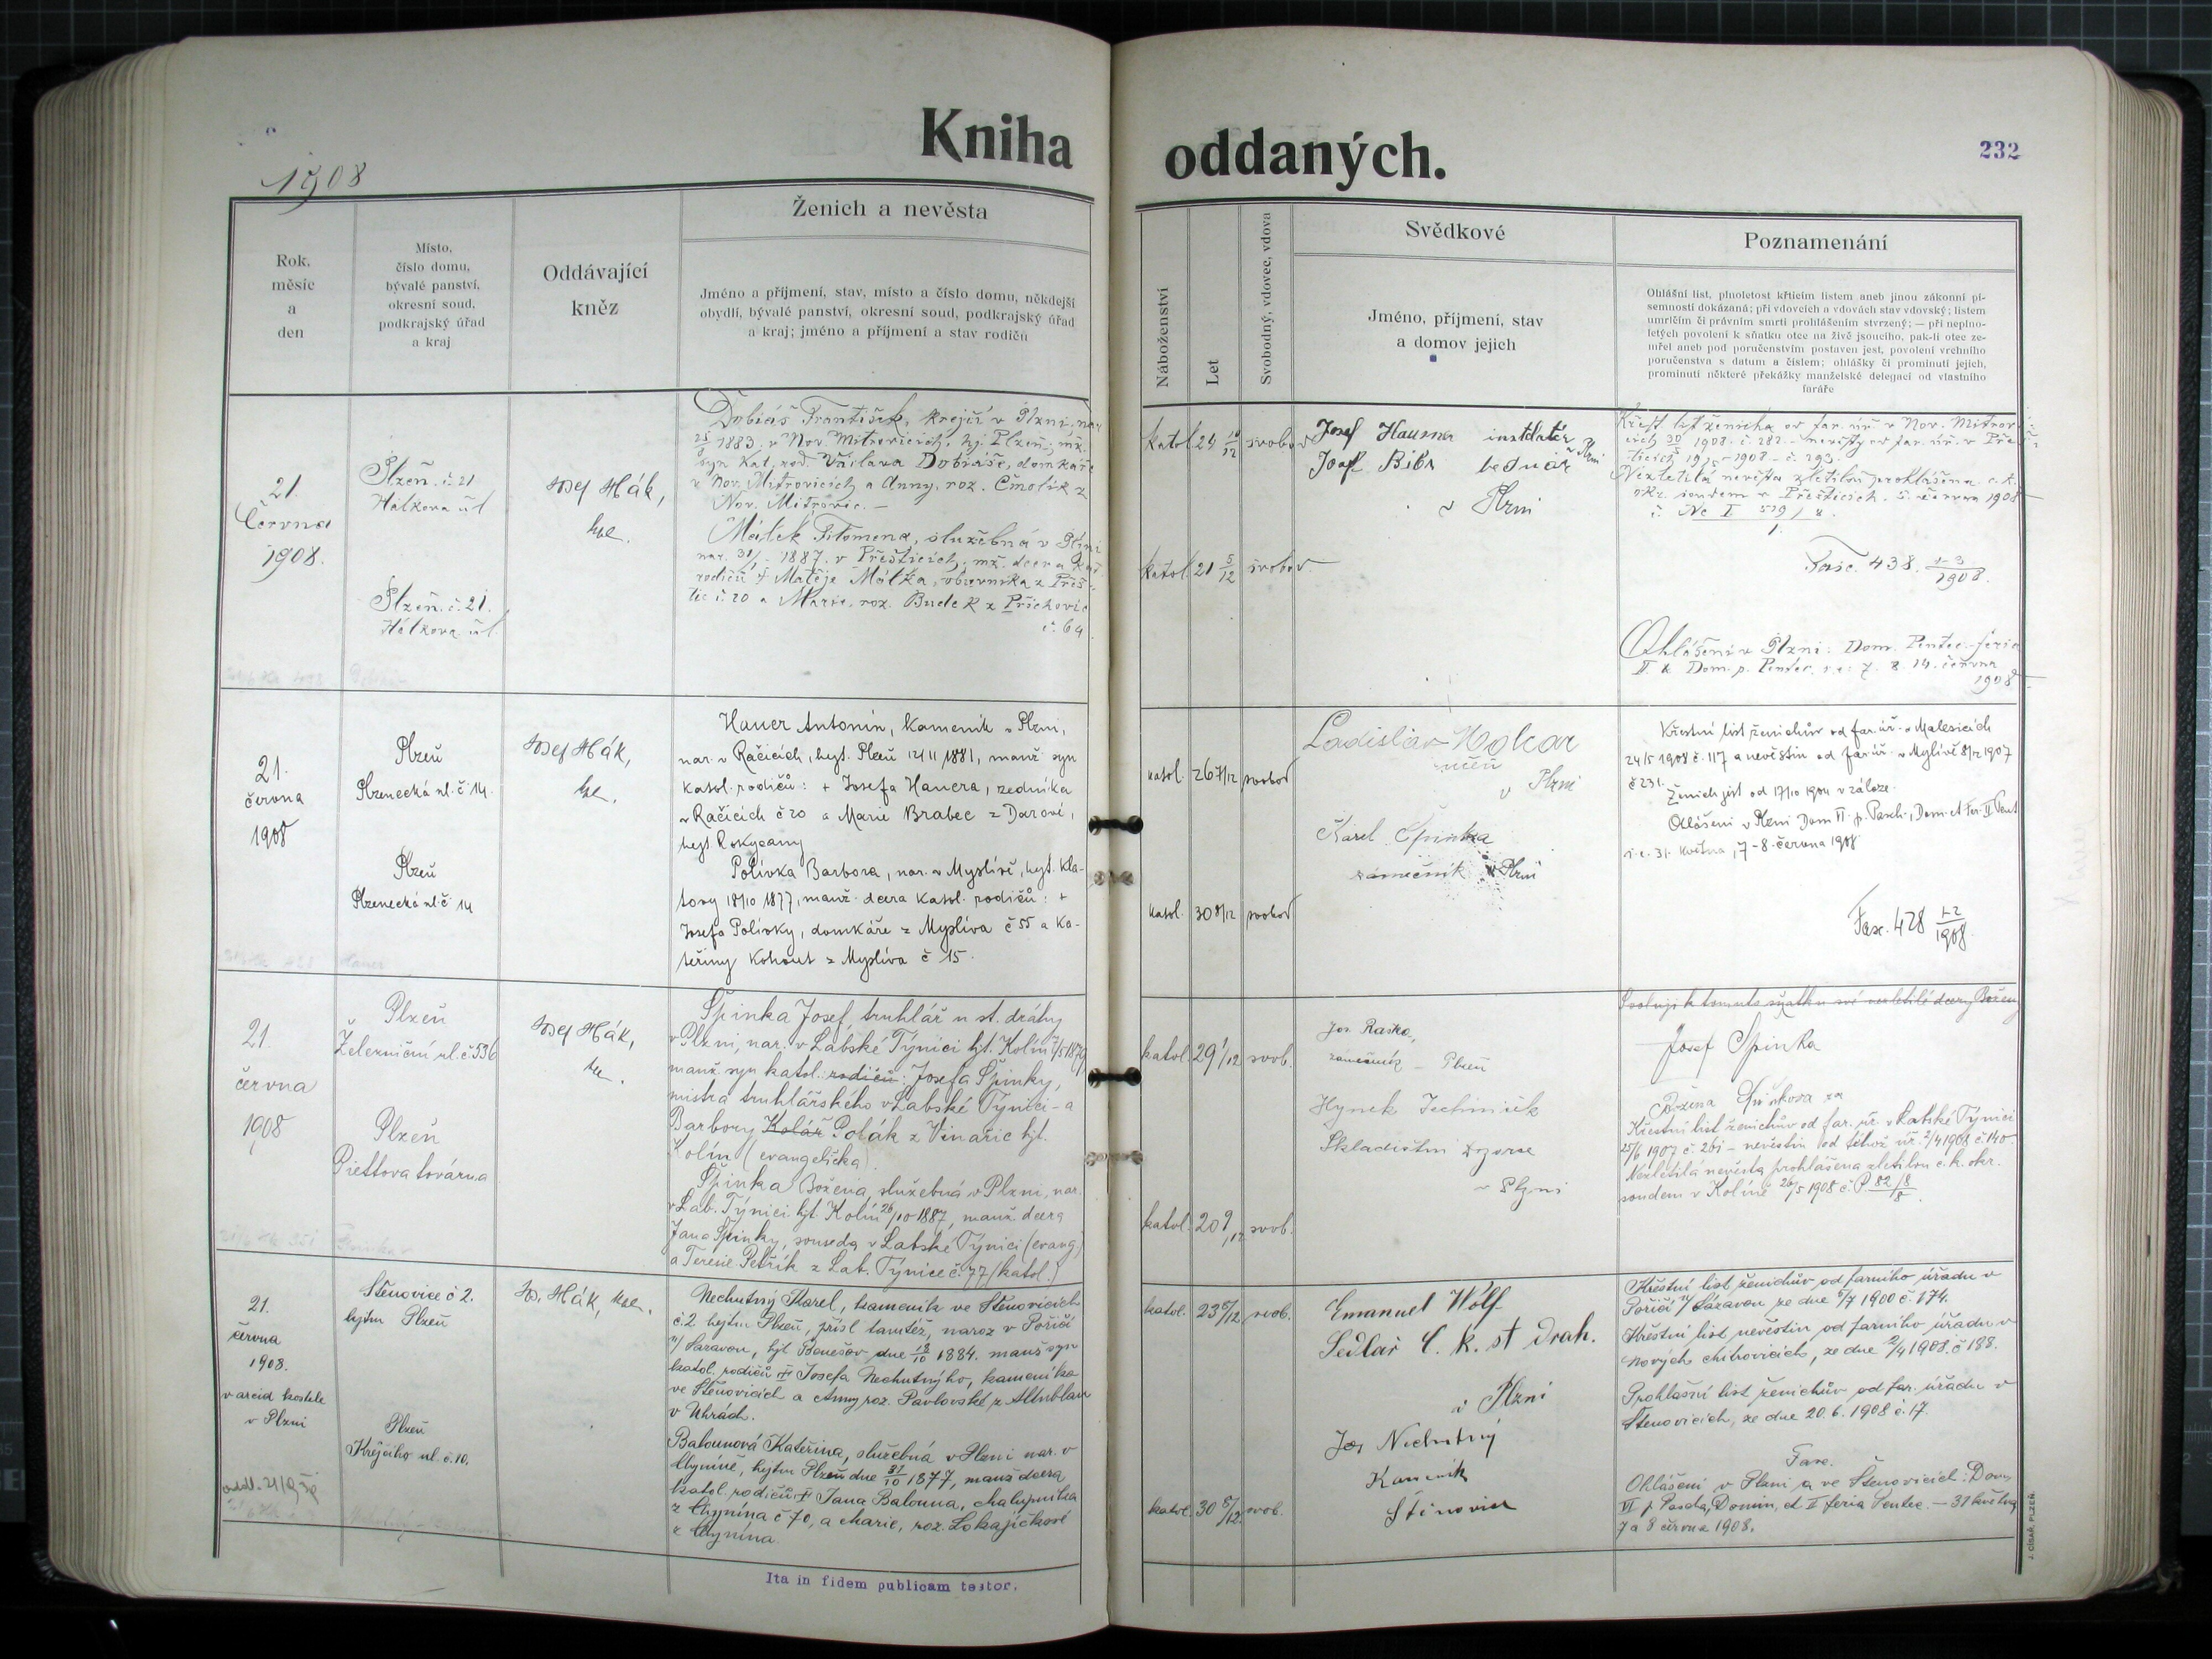 Kniha oddaných.
232
1908
Rok, měsíc a den
Místo, číslo domu, bývalé panství, okresní soud, podkrajský úřad a kraj
Oddávající kněz
Ženich a nevěsta
Jméno a příjmení, stav, místo a číslo domu, někdejší
obydlí, bývalé panství, okresní soud, podkrajský úřad
a kraj; jméno a příjmení a stav rodičů
Náboženství
Let
Svobodný, vdovec, vdova
Svědkové
Jméno, příjmení, stav
a domov jejich
Poznamenání
Ohlášní list, plnoletost křticím listem aneb jinou zákonní pí-
semností dokázaná; při vdovcích a vdovách stav vdovský; listem
umrlčím či právním smrti prohlášením stvrzený; — při neplno-
letých povolení k sňatku otce na živě jsoucího, pak-li otec ze-
mřel aneb pod poručenstvím postaven jest, povolení vrchního
poručenstva s datum a číslem; ohlášky či prominutí jejich,
prominutí některé překážky manželské delegací od vlastního
faráře
21.
Června
1908.
Plzeň č. 21
Hálkova ul
Plzeň č. 21.
Hálkova ul.
Josef Hák,
Dobiáš František, krejčí v Plzni, nar.
1883 v Nov. Mitrovicích, hj. Plzeň, mž.
syn kat. rod. Václava Dobiáše, domkáře
v Nov. Mitrovicích a Anny, roz. Čmolík z
Nov. Mitrovic. —
Málek Filomena, služebná v Plzni
nar. 1887 v Přešticích, mž. dcera kat.
rodičů † Matěje Málka, obuvníka z Přeš-
tic č. 20 a Marie, roz. Budek z Příchovic
č. 64
katol. 24 svobod
katol. 21 5/12 svobod
Josef Hausner instalatér v Plzni
Josef bednář
v Plzni
Křest. list ženicha od far. úř. v Nov. Mitrov-
icích 1908 č. 282 - nevěsty od far. úř. v Přeš-
ticích 1908 - č. 293.
Nezletilá nevěsta zletilou prohlášena c. k.
okr. soudem v Přešticích 5. června 1908
č. Nc I 519/8
1.
Fasc. 438 1-3/1908.
Ohlášeni v Plzni: Dom. Pentec. feria
II. a Dom. p. Pentec. t. e. 7. 8. 14. června
1908
21.
června
1908
Plzeň
Plzenecká ul. č 14.
Plzeň
Plzenecká ul. č 14
Josef Hák,
Hauer Antonín, kameník v Plzni,
nar. v Račicích, hejt. Plzeň 12/11 1881, manž. syn
katol. rodičů: † Josefa Hauera, zedníka
v Račicích č 20 a Marie Brabec z Darové,
hejt Rokycany
Polívka Barbora, nar. v Myslívě, hejt. Kla-
tovy 18/10 1877, manž. dcera katol. rodičů: †
Josefa Polívky, domkáře z Myslíva č 55 a Ka-
teřiny Kohout z Myslíva č 15.
katol. 26 7/12 svobod
katol. 30 8/12 svobod
Ladislav
v Plzni
Karel Špinka
zámečník v Plzni
Křestní list ženichův od far. úř. v Malesicích
24/5 1908 č. 117 a nevěstin od far. úř. v Myslívě 8/12 1907
č 231.
Ženich jest od 17/10 1904 v záloze.
Ohlášeni v Plzni Dom VI. p. Pasch., Dom. et Fer. II Pent
t. e. 31. května, 7-8. června 1908
Fasc. 428 1-2/1908.
21.
června
1908
Plzeň
Železniční ul. č 536
Plzeň
Piettova továrna
Josef Hák,
Špinka Josef, truhlář u st. dráhy
v Plzni, nar. v Labské Týnici hjt. Kolín 1879
manž. syn katol. rodičů: Josefa Špinky,
mistra truhlářského v Labské Týnici - a
Barbory Kolář Polák z Vinařic hjt.
Kolín (evangelička).
Špinka Božena, služebná v Plzni, nar.
v Lab. Týnici hjt. Kolín 26/10 1887, manž. dcera
Jana Špinky, souseda v Labské Týnici (evang)
a Terezie Petřík z Lab. Týnice č. 77 (katol.)
katol. 29 1/12 svob.
katol. 20 svob.
Jos. Raško,
zámečník — Plzeň
Hynek
Skladištní
v Plzni
Svoluji k tomuto sňatku své nezletilé dcery Boženy
Josef Špinka
Božena Špinkova za
Křestní list ženichův od far. úř. v Labské Týnici
25/6 1907 č. 261 - nevěstin od téhož úř. 2/4 1908 č. 140
Nezletilá nevěsta prohlášena zletilou c. k. okr.
soudem v Kolíně 26/5 1908 č. P 82/8
8.
21.
června
1908.
v arcid. kostele
v Plzni
Štěnovice č 2.
hejtm Plzeň
Plzeň
Krejčího ul. č. 10.
Jos. Hák,
Nechutný Karel, kameník ve Štěnovicích
č. 2 hejtm Plzeň, přísl tamtéž, naroz v Poříčí
n/ Sázavou, hjt Benešov dne 1884. manž syn
katol. rodičů Josefa Nechutného, kameníka
ve Štěnovicích a Anny roz. Pavlovské z
v Uhrách.
Balounová Kateřina, služebná v Plzni nar. v
Chyníně, hejtm Plzeň dne 31/10 1877, manž dcera
katol. rodičů Jana Balouna, chalupníka
z Chynína č 70, a Marie, roz. Lokajíčkové
z Chynína.
katol. 23 8/12 svob.
katol. 30 svob.
Emanuel Wolf
Sedlář C. k. st drah.
v Plzni
Jos Nechutný
Kameník
Štěnovice
Křestní list ženichův od farního úřadu v
Poříčí n/ Sázavou ze dne 1900 č. 174.
Křestní list nevěstin od farního úřadu v
Nových Mitrovicích, ze dne 1908. č 188.
Prohlášní list ženichův od far. úřadu v
Štěnovicích, ze dne 20. 6. 1908 č. 17.
Fasc.
Ohlášeni v Plzni a ve Štěnovicích: Dom.
VI p Pascha, Domin, et II feria Pentec. — 31 května
7 a 8 června 1908.
Ita in fidem publicam testor.
J. CÍSAŘ, PLZEŇ.